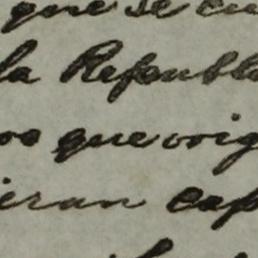 que se cu
la Republ
que orig
ieran cap